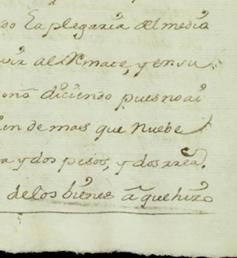 so La plegaria del media
vix al Remate, y en su
ona diciendo pues no ai
ien de mas que Nuebe
a y dos pesos, y dos rrea.
de los bienes a que hizo